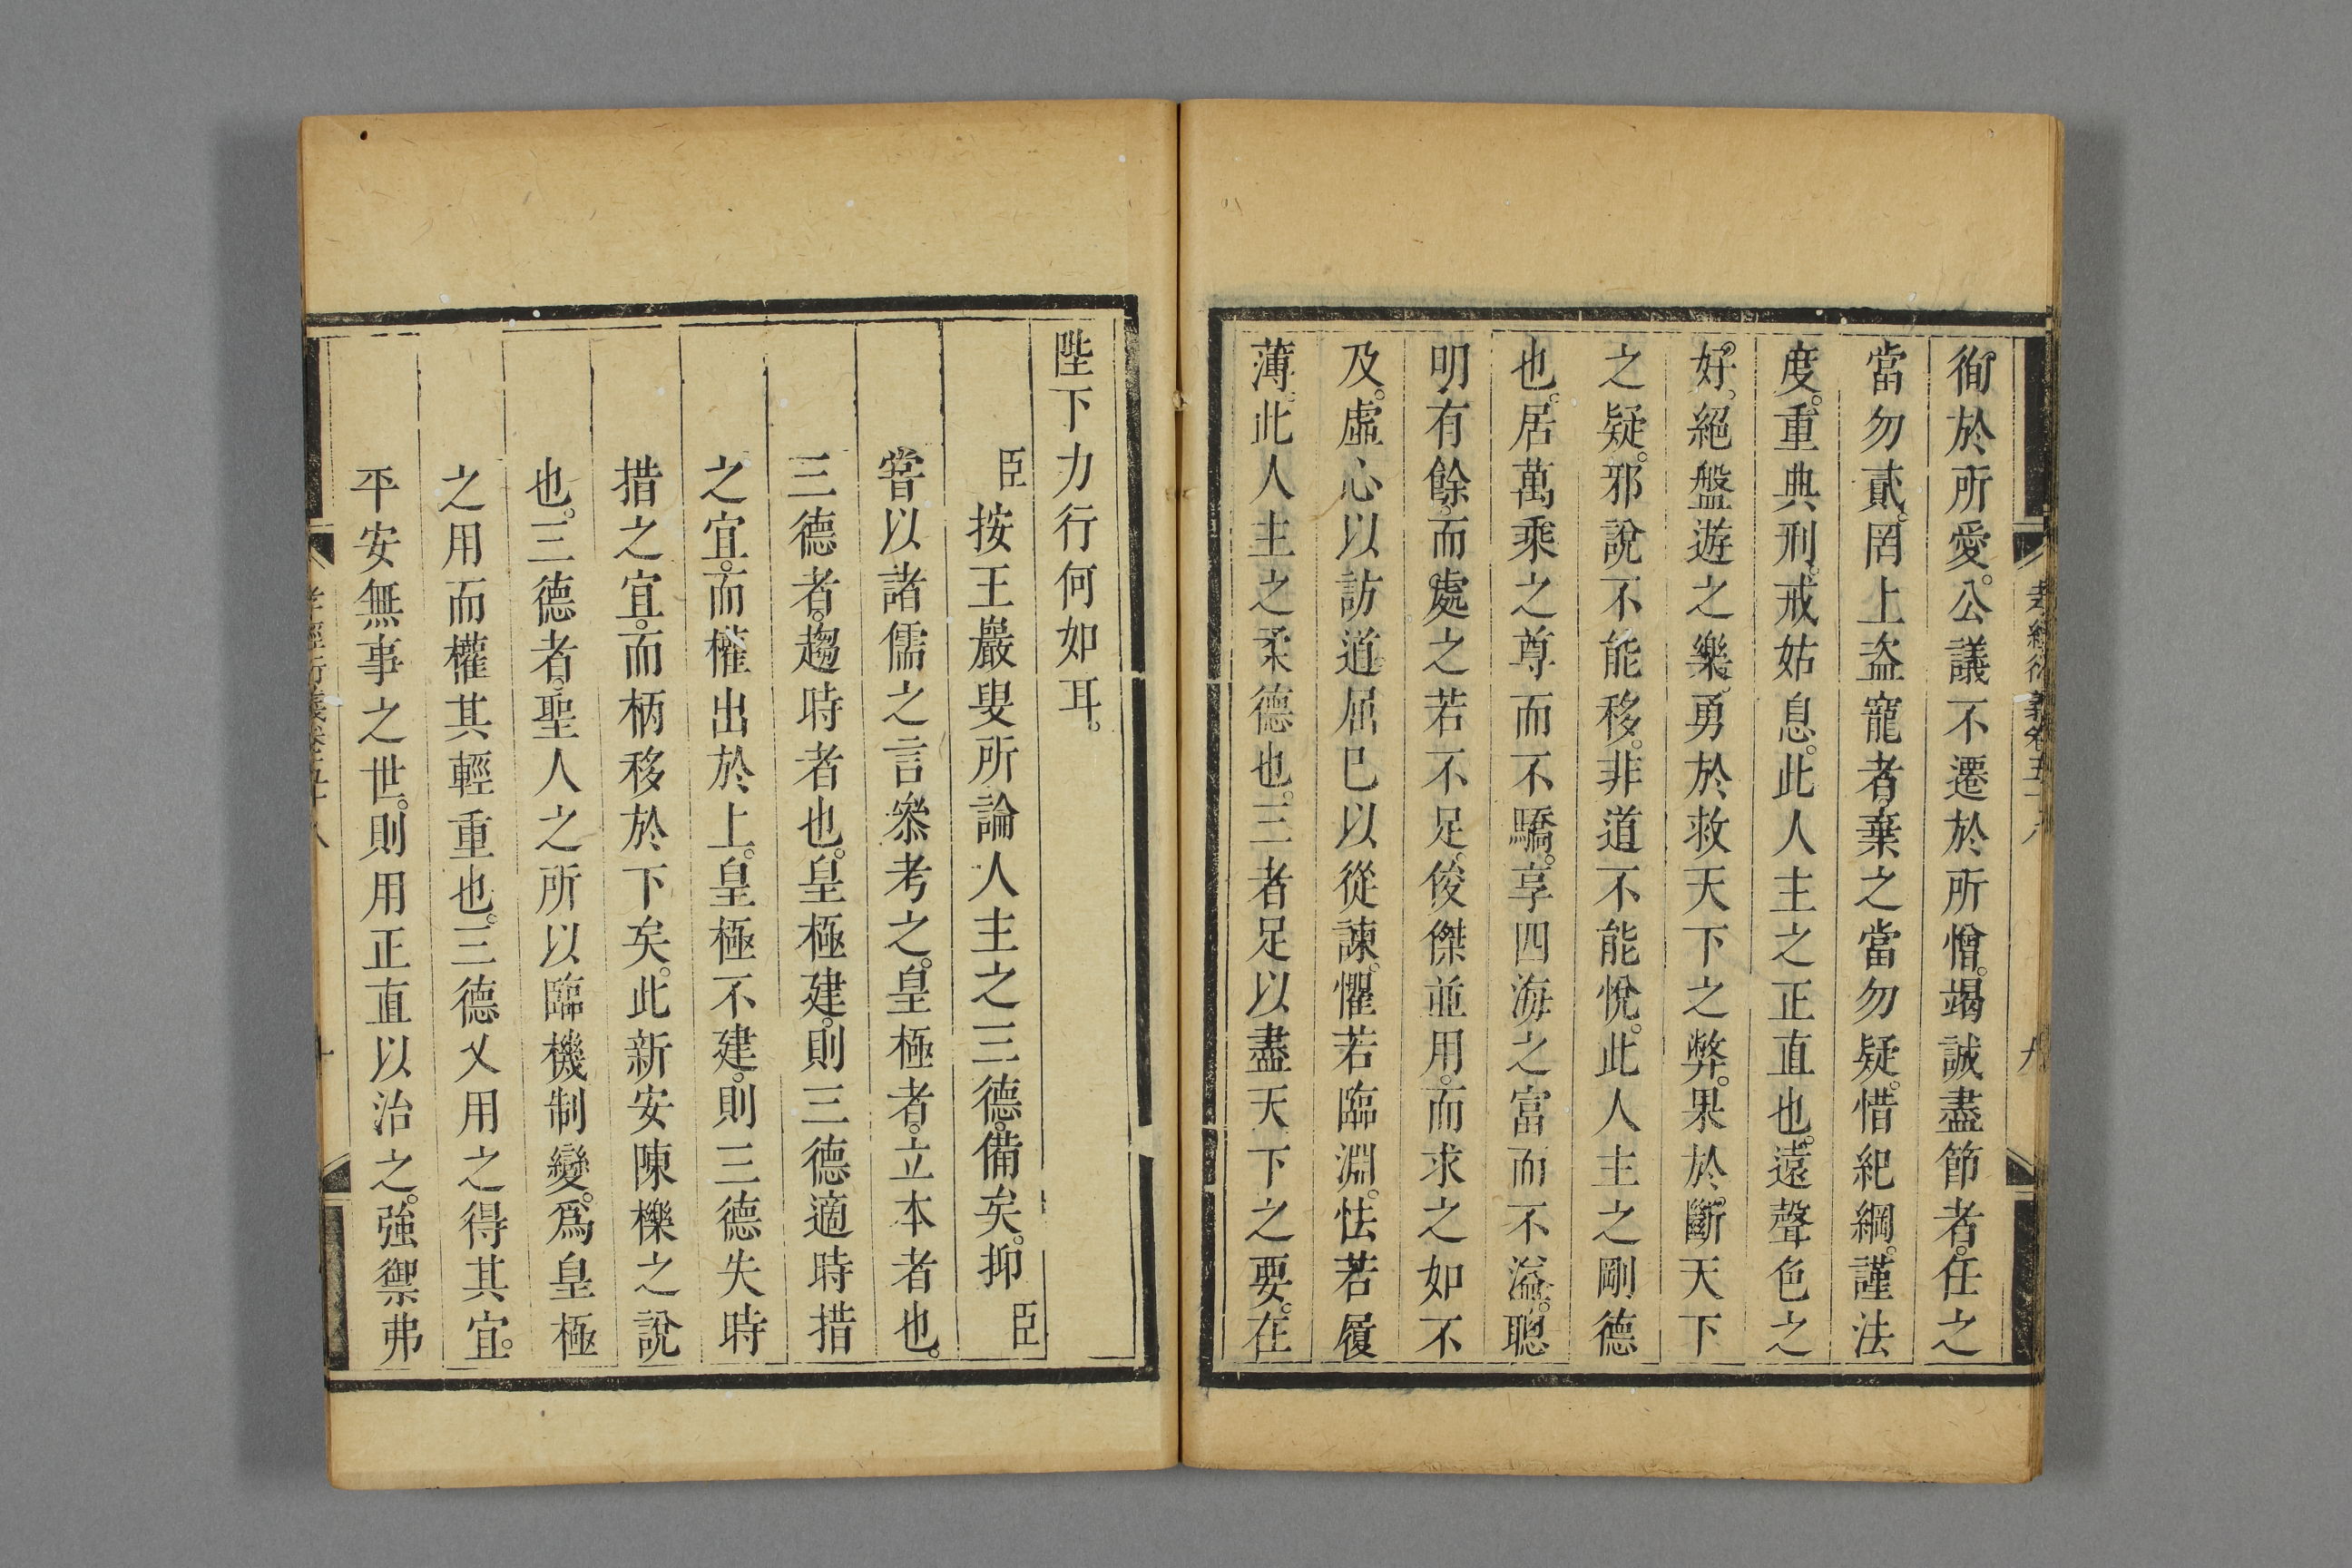 徇於所愛。公議不遷於所憎。竭誠盡節者。任之
當勿貳。罔上盜寵者。棄之當勿疑。惜紀綱。謹法
度。重典刑。戒姑息。此人主之正直也。遠聲色之
好。絕盤遊之樂。勇於救天下之弊。果於斷天下
之疑。邪說不能移。非道不能悅。此人主之剛德
也。居萬乘之尊而不驕。享四海之富而不溢。聰
明有餘。而處之若不足。俊傑並用。而求之如不
及。虛心以訪道。屈已以從諫。懼若臨淵。怯若履
薄。此人主之柔德也。三者足以盡天下之要。在
陛下力行何如耳。
臣按王巖叟所論人主之三德。備矣。抑臣
嘗以諸儒之言叅考之。皇極者。立本者也。
三德者。趨時者也。皇極建。則三德適時措
之宜。而權出於上。皇極不建。則三德失時
措之宜。而柄移於下矣。此新安陳櫟之說
也。三德者。聖人之所以臨機制變。爲皇極
之用而權其輕重也。三德乂用之得其宜。
平安無事之世。則用正直以治之。強禦弗